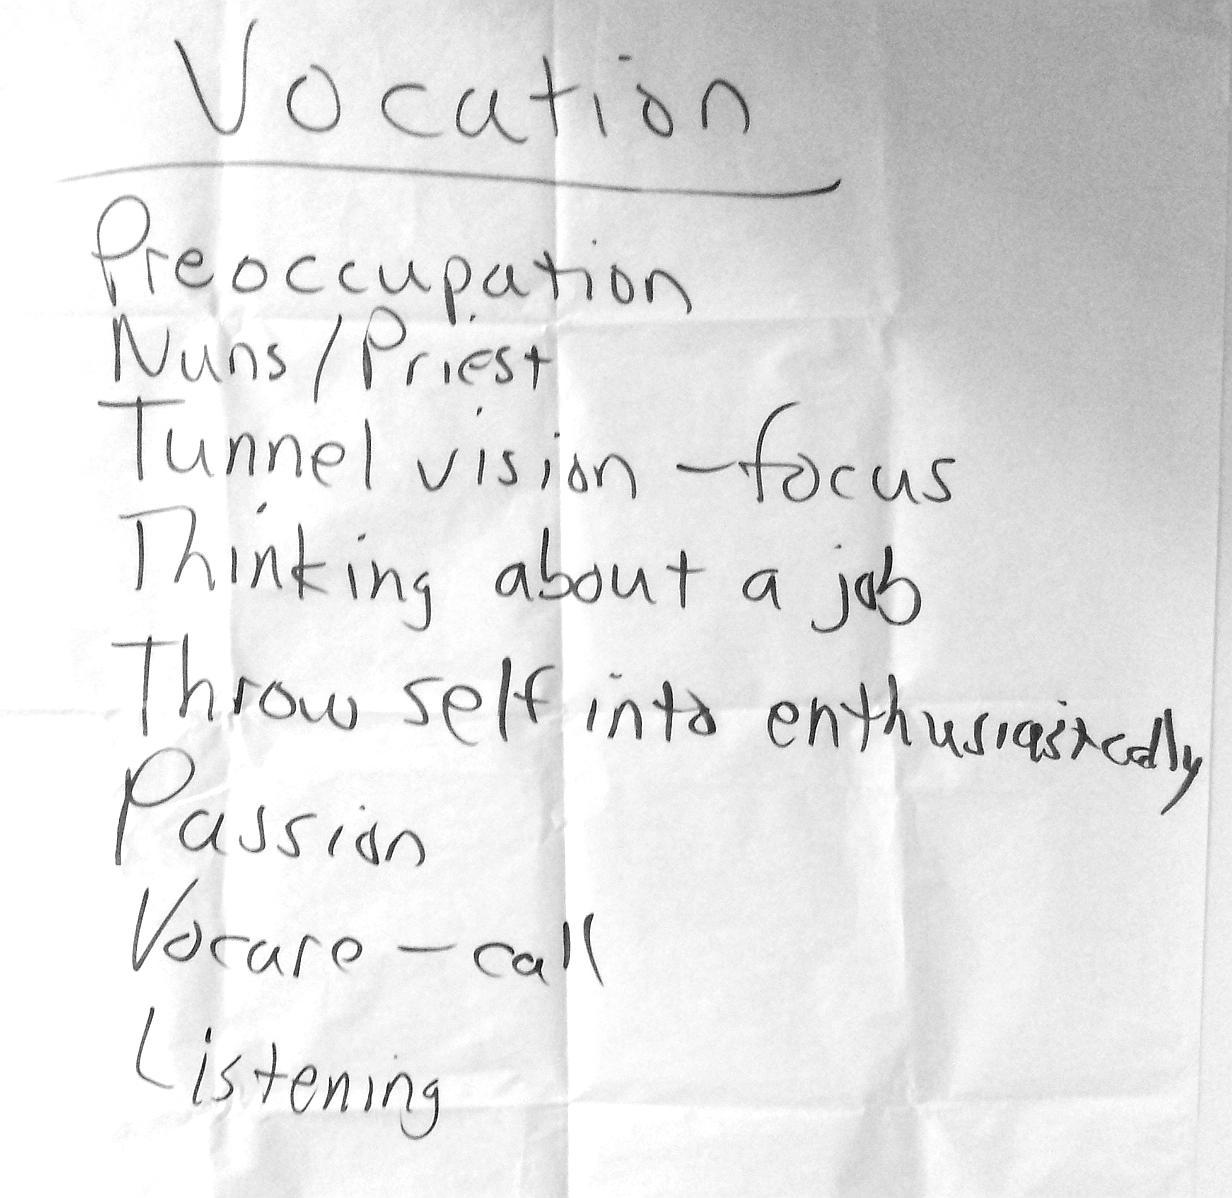 Vocation
Preoccupation
Nuns/Priest
Tunnel vision - focus
Thinking about a job
Throw self into enthusiastically
Passion
Vocare - call
Listening